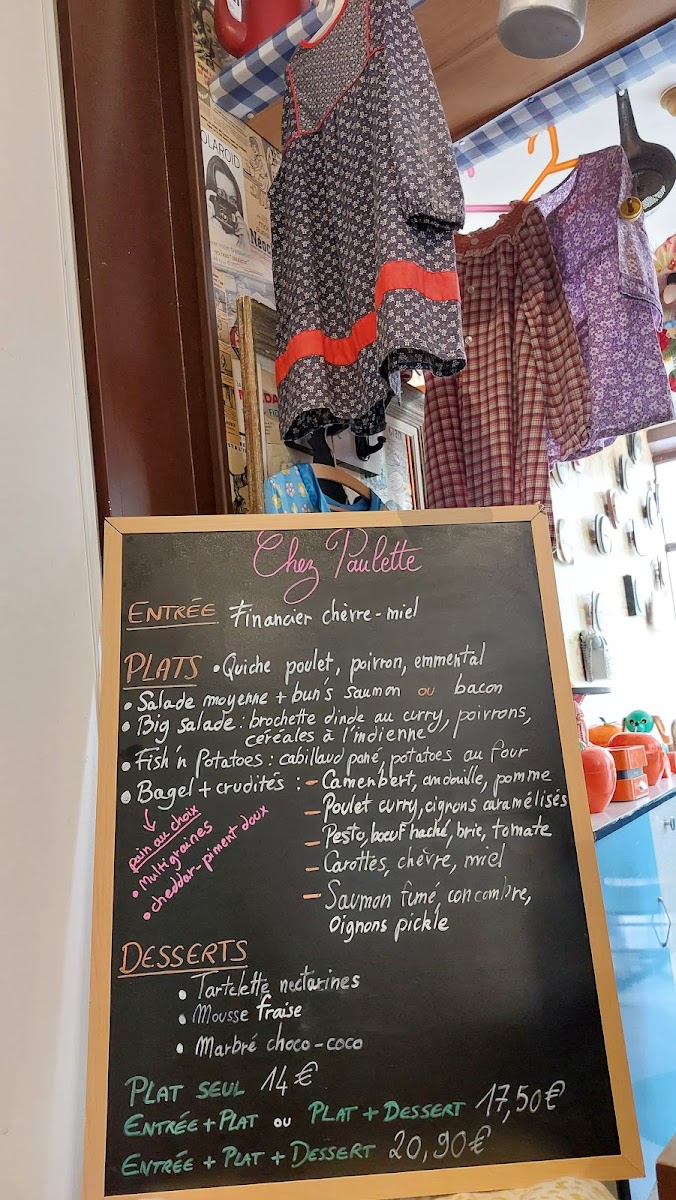 OLAROID
Chez Paulette
ENTRÉE Financier chèvre-miel
PLATS • Quiche poulet, poivron, emmental
• Salade moyenne + bun's saumon ou bacon
• Big salade : brochette dinde au curry, poivrons,
céréales à l'indienne
• Fish'n Potatoes : cabillaud pané, potatoes au four
• Bagel + crudités : - Camembert, andouille, pomme
- Poulet curry, oignons caramélisés
- Pesto, boeuf haché, brie, tomate
- Carottes, chèvre, miel
- Saumon fumé, concombre,
oignons pickle
pain au choix
• multigraines
• cheddar-piment doux
DESSERTS
• Tartelette nectarines
• Mousse fraise
• Marbré choco-coco
PLAT SEUL 14€
ENTRÉE + PLAT ou PLAT + DESSERT 17,50€
ENTRÉE + PLAT + DESSERT 20,90€